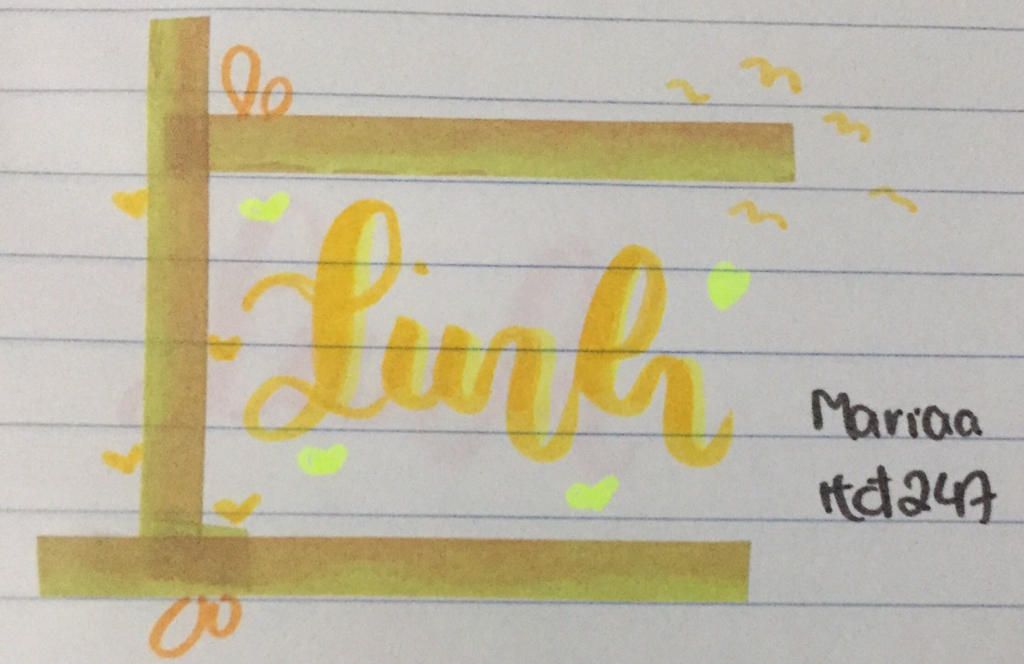 Linh
Mariaa
rtct247